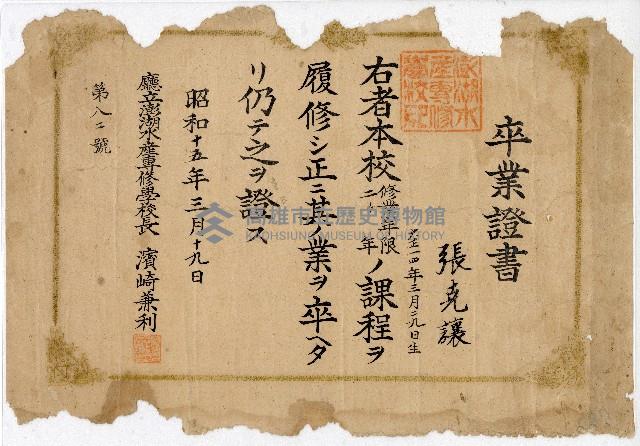 卒業證書
張堯讓
大正十四年三月二九日生
右者本校修業年限二ヶ年ノ課程ヲ
履修シ正ニ其ノ業ヲ卒ヘタ
リ仍テ之ヲ證ス
昭和十五年三月十九日
廳立澎湖水產專修學校長 濱崎兼利
第八二號
高雄市立歷史博物館
KAOHSIUNG MUSEUM OF HISTORY